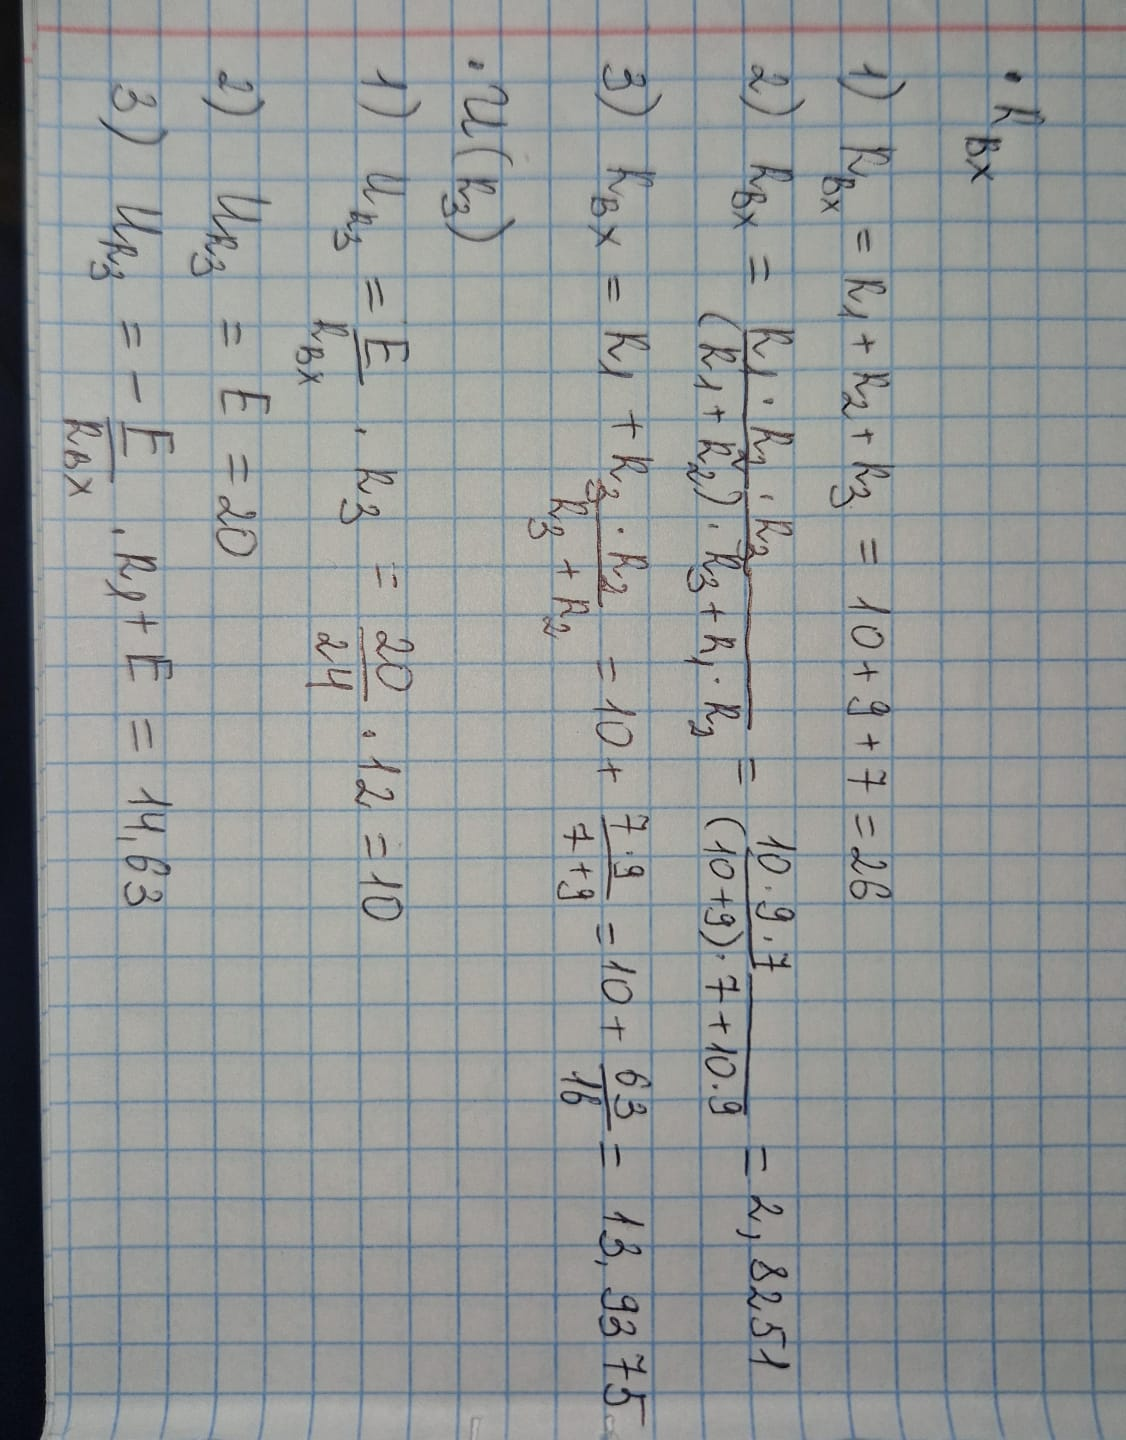 · R_вх
1) R_вх = R_1 + R_2 + R_3 = 10 + 9 + 7 = 26
2) R_вх = (R_1 · R_2 · R_3) / ((R_1 + R_2) · R_3 + R_1 · R_2) = (10 · 9 · 7) / ((10 + 9) · 7 + 10 · 9) = 2,8251
3) R_вх = R_1 + (R_3 · R_2) / (R_3 + R_2) = 10 + (7 · 9) / (7 + 9) = 10 + 63/16 = 13,9375
· U(R_3)
1) U_R3 = E/R_вх · R_3 = 20/24 · 12 = 10
2) U_R3 = E = 20
3) U_R3 = - E/R_вх · R_1 + E = 14,63